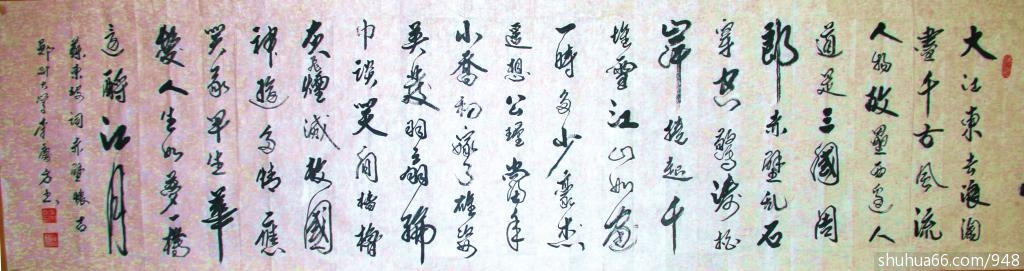 大江東去浪淘
盡千古風流
人物故壘西邊人
道是三國周
郎赤壁乱石
穿空驚濤拍
岸捲起千
堆雪江山如画
一時多少豪杰
遥想公瑾當年
小喬初嫁了雄姿
英發羽扇綸
巾談笑間檣櫓
灰飛煙滅故國
神遊多情應
笑我早生華
髮人生如夢一樽
還酹江月
蘇東坡詞赤壁懷古
鄭州大學李
shuhua66.com/948